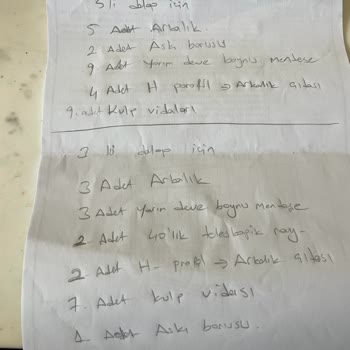 5 li dolap için
5 Adet Arkalık
2 Adet Askı borusu
9 Adet Yarım deve boynu menteşe
4 Adet H profil → Arkalık Çıtası
9. adet Kulp vidaları
3 lü dolap için
3 Adet Arkalık
3 Adet Yarım deve boynu menteşe
2 Adet 40'lık teleskopik ray
2 Adet H- profil → Arkalık Çıtası
7. Adet kulp vidası
1 Adet Askı borusu.